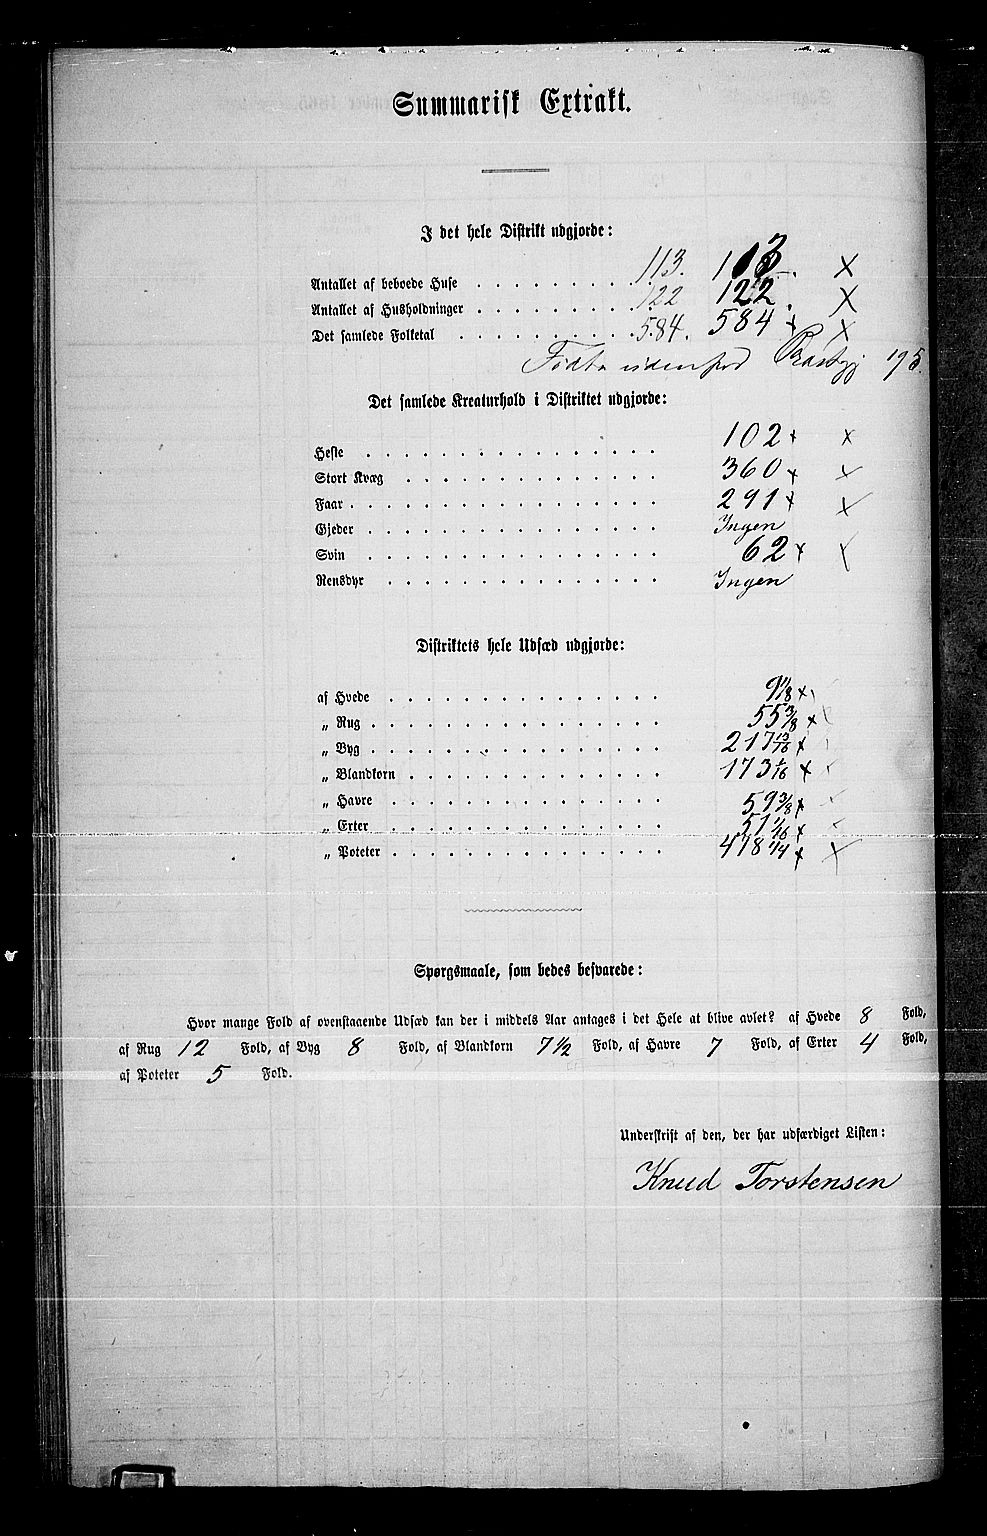 Summarisk Extrakt.
I det hele Distrikt udgjorde:
Antallet af beboede Huse . . . . . . . . 113. 113.
Antallet af Husholdninger . . . . . . . . 122 122.
Det samlede Folketal . . . . . . . . 584. 584
Fødte udenfor 195.
Det samlede Kreaturhold i Distriktet udgjorde:
Heste . . . . . . . . 102
Stort Kvæg . . . . . . . . 360
Faar . . . . . . . . 291
Gjeder . . . . . . . . Ingen
Svin . . . . . . . . 62
Rensdyr . . . . . . . . Ingen
Distriktets hele Udsæd udgjorde:
af Hvede . . . . . . . .
„ Rug . . . . . . . . 55 3/8
„ Byg . . . . . . . . 217 13/16
„ Blandkorn . . . . . . . . 173
„ Havre . . . . . . . . 59 3/8
„ Erter . . . . . . . . 51
„ Poteter . . . . . . . . 478 1/4
Spørgsmaale, som bedes besvarede:
Hvor mange Fold af ovenstaaende Udsæd kan der i middels Aar antages i det Hele at blive avlet? af Hvede 8 Fold,
af Rug 12 Fold, af Byg 8 Fold, af Blandkorn 7 1/2 Fold, af Havre 7 Fold, af Erter 4 Fold,
af Poteter 5 Fold.
Underskrift af den, der har udfærdiget Listen:
Knud Torstensen